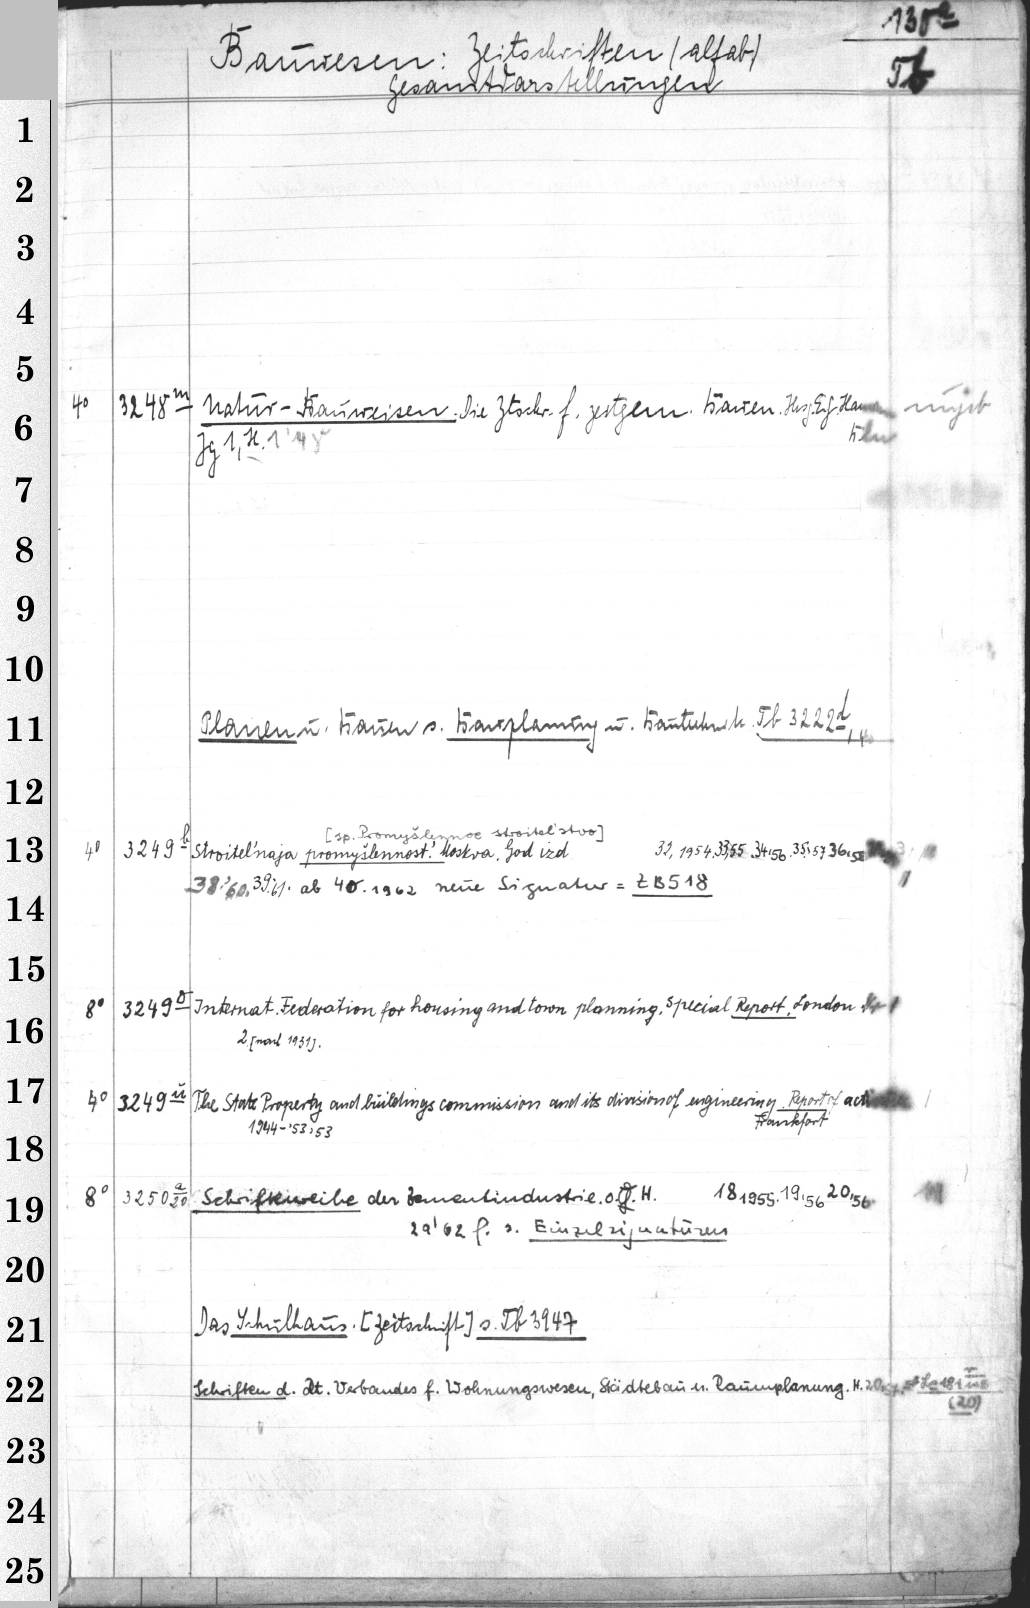 130a
Bauwesen: Zeitschriften (alfab)
Gesamtdarstellungen
Tb
1
2
3
4
5
6
4° 3248m Natur-Bauweisen. Die Ztschr. f. zeitgem. Bauen. Hrsg.
Jg 1, H. 1 '48
7
8
9
10
11
Planen u. Bauen s. Bauplanung u. Bautechnik. Tb 3222d, 4°
12
[sp. Promyšlennoe stroitel'stvo]
13
4° 3249b Stroitel'naja promyšlennost'. Moskva, God izd 32, 1954. 33,55. 34,56. 35,57 36,58
38,'60. 39,'61. ab 40. 1962 neue Signatur = ZB518
14
15
8° 3249 Internat. Federation for housing and town planning. Special Report. London
16
2. [nach 1931].
17
4° 3249u The State Property and buildings commission and its division of engineering. Report of
Frankfort
1944-'53,53
18
8° 3250a/20 Schriftenreihe der Zementindustrie. 18 1955. 19,56 20,56.
19
29'62 f. s. Einzelsignaturen
20
21
Das Schulhaus. [Zeitschrift] s. Tb 3947
22
Schriften d. Dt. Verbandes f. Wohnungswesen, Städtebau u. Raumplanung. H. 20
(20)
23
24
25